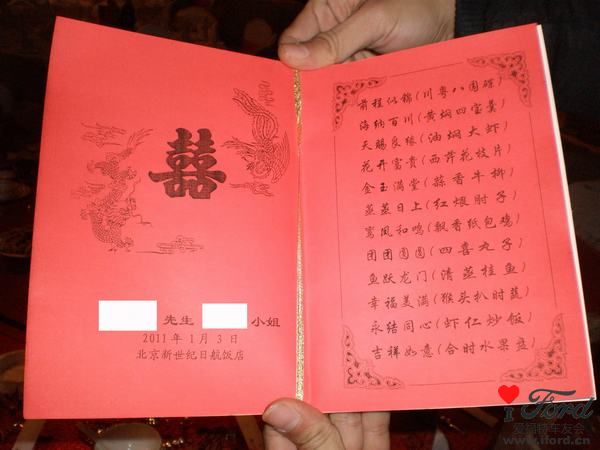 囍
先生 小姐
2011年1月3日
北京新世纪日航饭店
前程似锦(川粤八围碟)
海纳百川(黄焖四宝羹)
天赐良缘(油焖大虾)
花开富贵(西芹花枝片)
金玉满堂(蒜香牛柳)
蒸蒸日上(红煨肘子)
鸾凤和鸣(飘香纸包鸡)
团团圆圆(四喜丸子)
鱼跃龙门(清蒸桂鱼)
幸福美满(猴头扒时蔬)
永结同心(虾仁炒饭)
吉祥如意(合时水果盘)
I Ford
爱福特车友会
www.iford.cn